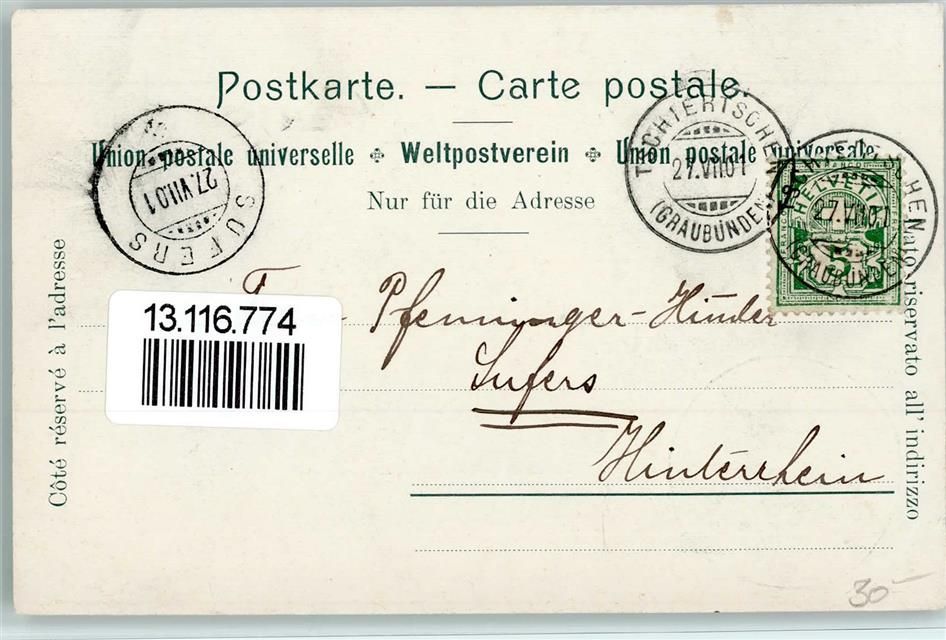 Postkarte. — Carte postale.
Union postale universelle ✤ Weltpostverein ✤ Union postale universale
Nur für die Adresse
Côté réservé à l'adresse
Lato riservato all' indirizzo
SUFERS
27.VII.01
TSCHIERTSCHEN
27.VII01
(GRAUBÜNDEN)
TSCHIERTSCHEN
27.VII01
(GRAUBÜNDEN)
FRANCO
HELVETIA
5
13.116.774
Pfenninger-Hinder
Sufers
Hinterrhein
30-